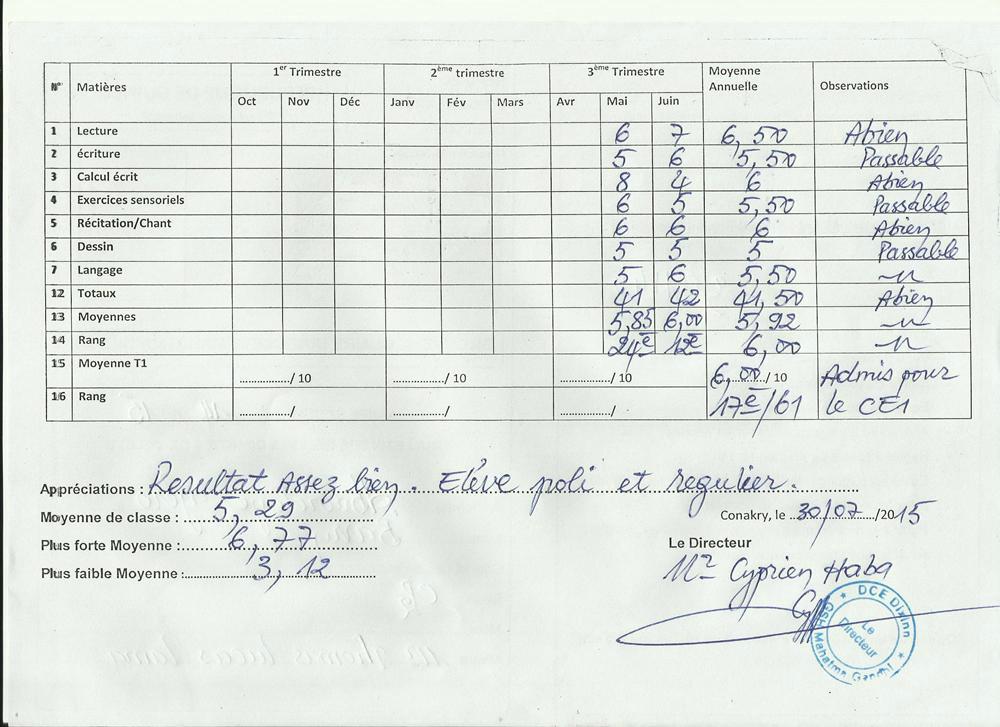 N° Matières 1er Trimestre 2ème trimestre 3ème Trimestre Moyenne Annuelle Observations
Oct Nov Déc Janv Fév Mars Avr Mai Juin
1 Lecture 6 7 6,50 Abien
2 écriture 5 6 5,50 Passable
3 Calcul écrit 8 4 6 Abien
4 Exercices sensoriels 6 5 5,50 Passable
5 Récitation/Chant 6 6 6 Abien
6 Dessin 5 5 5 Passable
7 Langage 5 6 5,50 -"-
12 Totaux 41 42 41,50 Abien
13 Moyennes 5,85 6,00 5,92 -"-
14 Rang 24e 12e 6,00 -"-
15 Moyenne T1 ................/ 10 ................/ 10 ................/ 10 6,00 / 10 Admis pour
16 Rang ................/ ................/ ................/ 17e/61 le CE1
Appréciations : Resultat Assez bien. Elève poli et regulier.
Moyenne de classe : 5,29
Conakry, le 30/07 /2015
Plus forte Moyenne : 6,77
Le Directeur
Plus faible Moyenne : 3,12
Mr Cyprien Haba
DCE Dixinn
Le Directeur
GSP Mahatma Gandhi